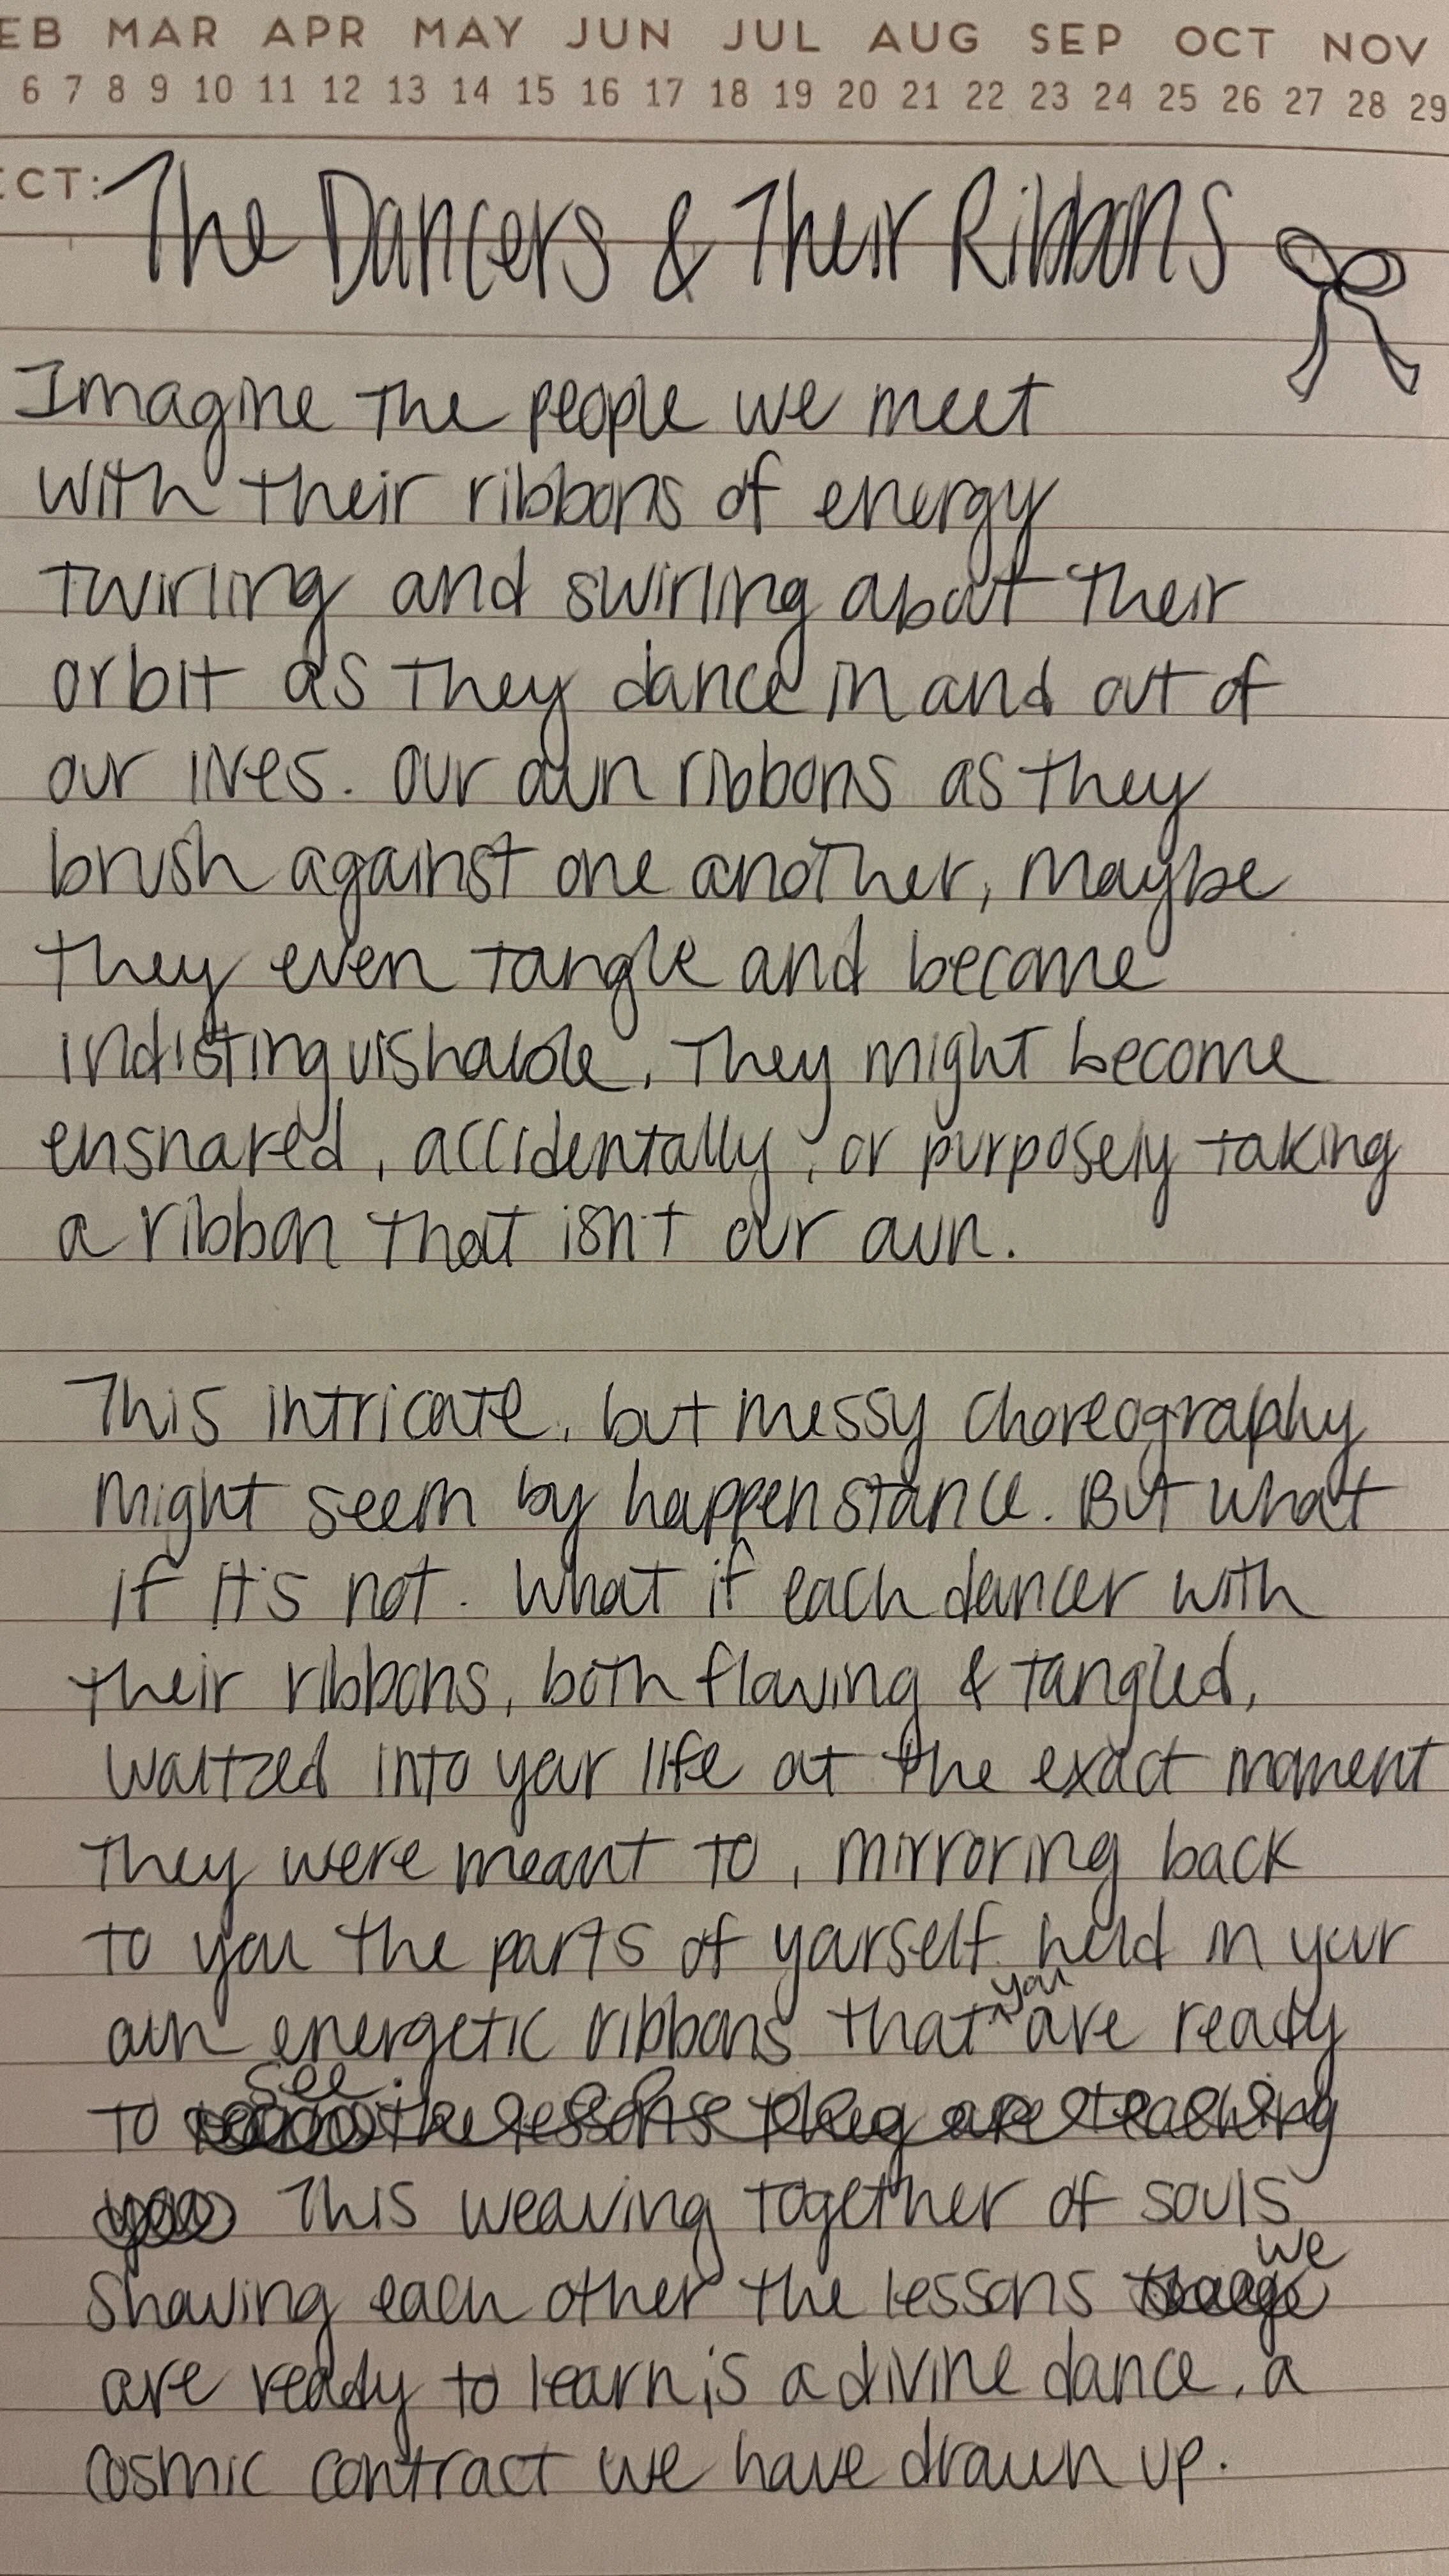 EB MAR APR MAY JUN JUL AUG SEP OCT NOV
6 7 8 9 10 11 12 13 14 15 16 17 18 19 20 21 22 23 24 25 26 27 28 29
ECT: The Dancers & Their Ribbons
Imagine the people we meet
with their ribbons of energy
twirling and swirling about their
orbit as they dance in and out of
our lives. Our own ribbons as they
brush against one another, maybe
they even tangle and become
indistinguishable. They might become
ensnared, accidentally, or purposely taking
a ribbon that isn't our own.
This intricate, but messy choreography
might seem by happenstance. But what
if it's not. What if each dancer with
their ribbons, both flowing & tangled,
waltzed into your life at the exact moment
they were meant to, mirroring back
to you the parts of yourself held in your
own energetic ribbons that you are ready
to see. the lessons they are teaching
you This weaving together of souls
showing each other the lessons we
are ready to learn, is a divine dance, a
cosmic contract we have drawn up.